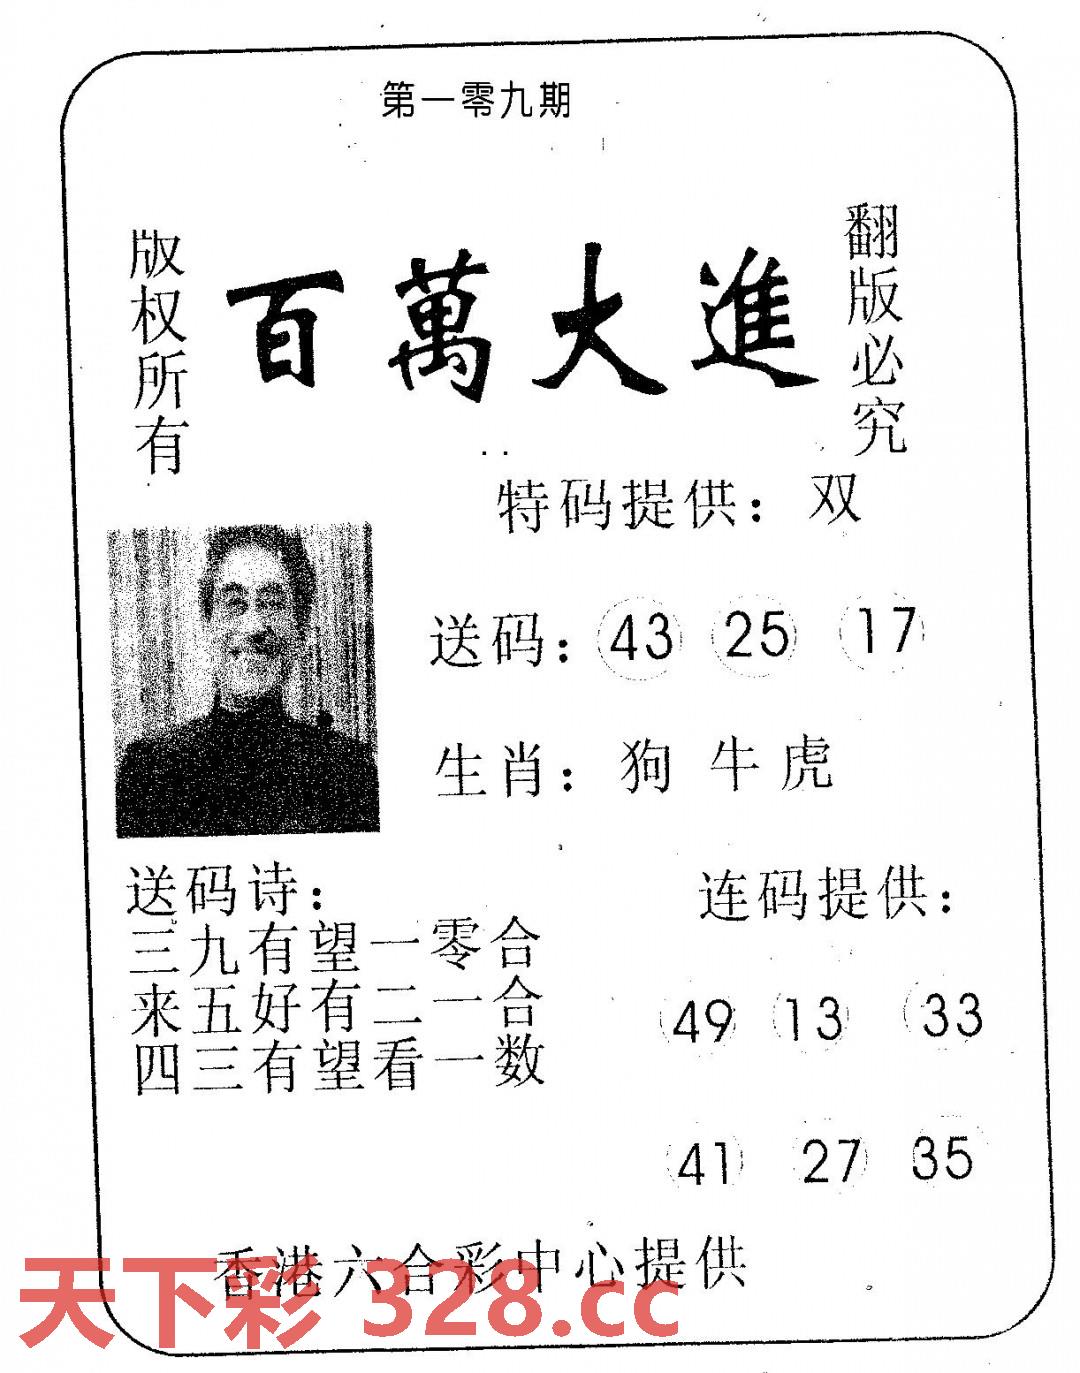 第一零九期
版权所有
百萬大進
翻版必究
特码提供：双
送码：43 25 17
生肖：狗 牛 虎
送码诗：
三九有望一零合
来五好有二一合
四三有望看一数
连码提供：
49 13 33
41 27 35
香港六合彩中心提供
天下彩 328.cc